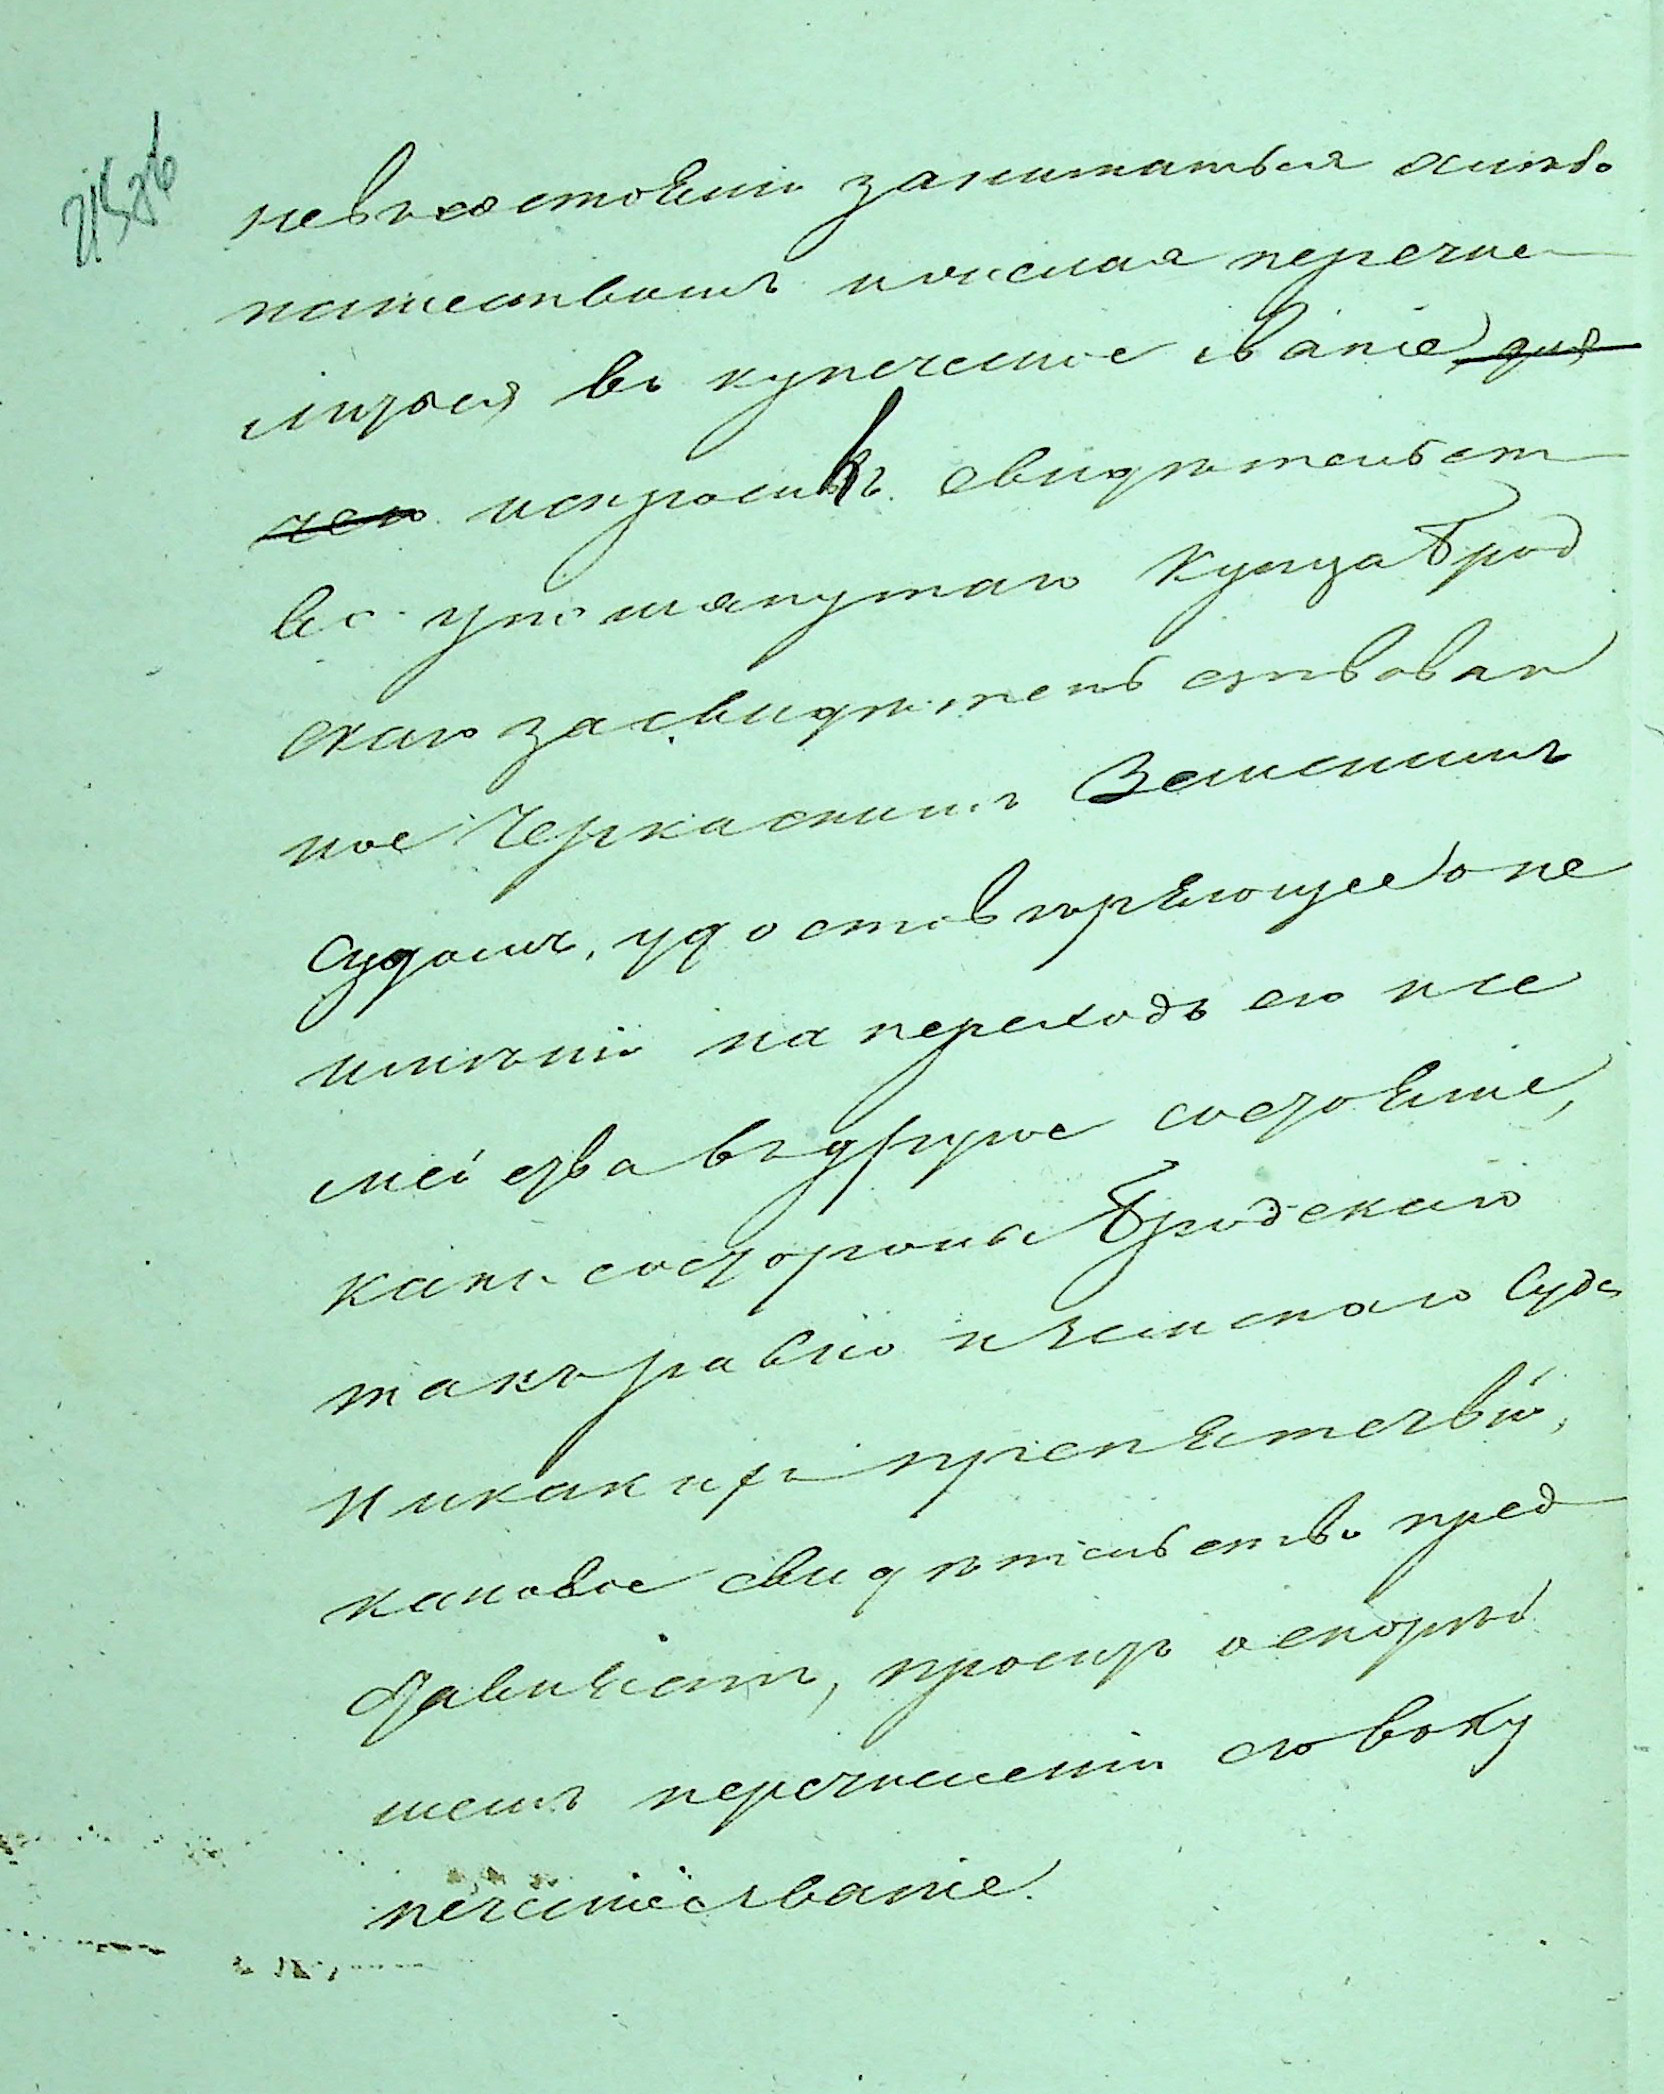 невъ состояніи заниматься хлѣбо
пашествомъ и желая перечис
литься въ купеческое званіе, для
чего испросилъ свидѣтельст
во упомянутаго купца Брод
скаго засвидѣтельствован
ное Черкаскимъ Земскимъ
Судомъ, удостовѣряющее о не
имѣніи на переходъ его и се
мейства въ другое состояніе,
какъ состороны Бродскаго
такъ равно и Земскаго Суда
никакихъ препятствій,
каковое свидѣтельство пред
ставляетъ, проситъ о скорѣй
шемъ перечисленіи его въ ку
печеское званіе.